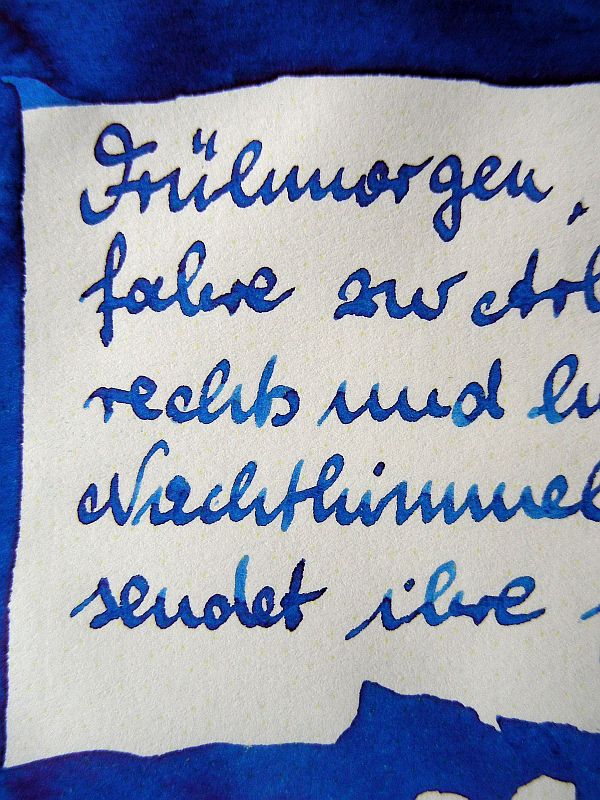 Frühmorgen,
fahre zur Arb
rechts und li
Nachthimmel
sendet ihre